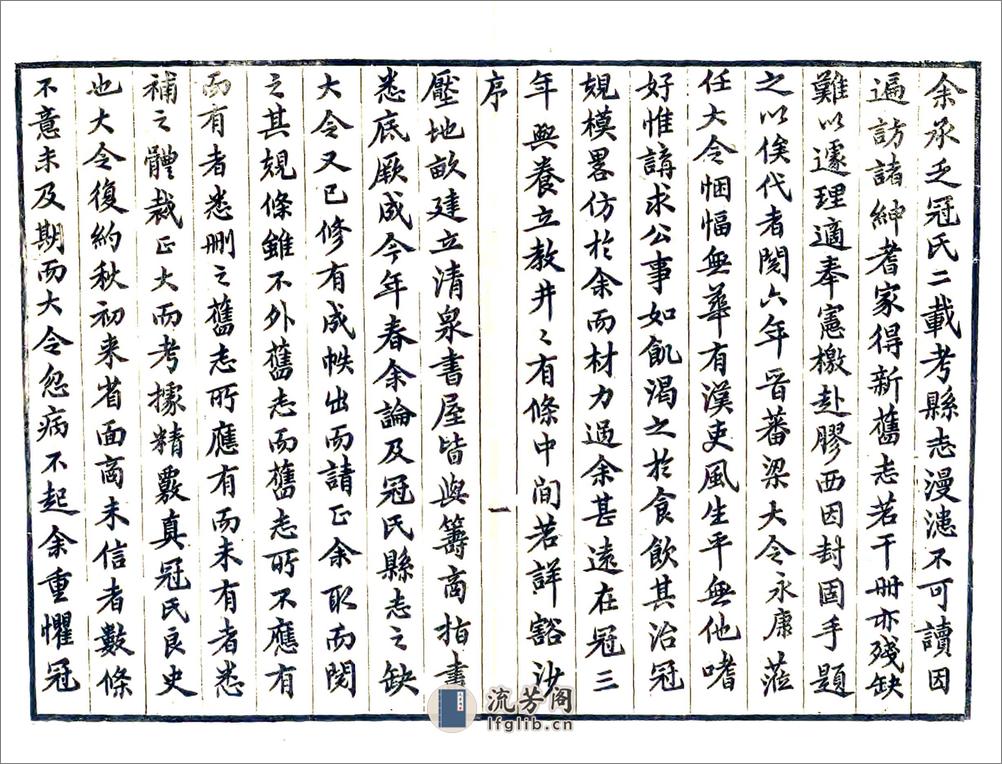 余承乏冠氏二載考縣志漫漶不可讀因
遍訪諸紳耆家得新舊志若干冊亦殘缺
難以遽理適奉憲檄赴膠西因封固手題
之以俟代者閱六年晋蕃梁大令永康蒞
任大令悃愊無華有漢吏風生平無他嗜
好惟講求公事如飢渴之於食飲其治冠
規模畧仿於余而材力過余甚遠在冠三
年興養立教井〻有條中間若詳豁沙
序
一
壓地畝建立清泉書屋皆與籌商指畫
悉底厥成今年春余論及冠氏縣志之缺
大令又已修有成帙出而請正余取而閱
之其規條雖不外舊志而舊志所不應有
而有者悉刪之舊志所應有而未有者悉
補之體裁正大而考據精覈真冠氏良史
也大令復約秋初来省面商未信者數條
不意未及期而大令忽病不起余重懼冠
流芳阁
lfglib.cn